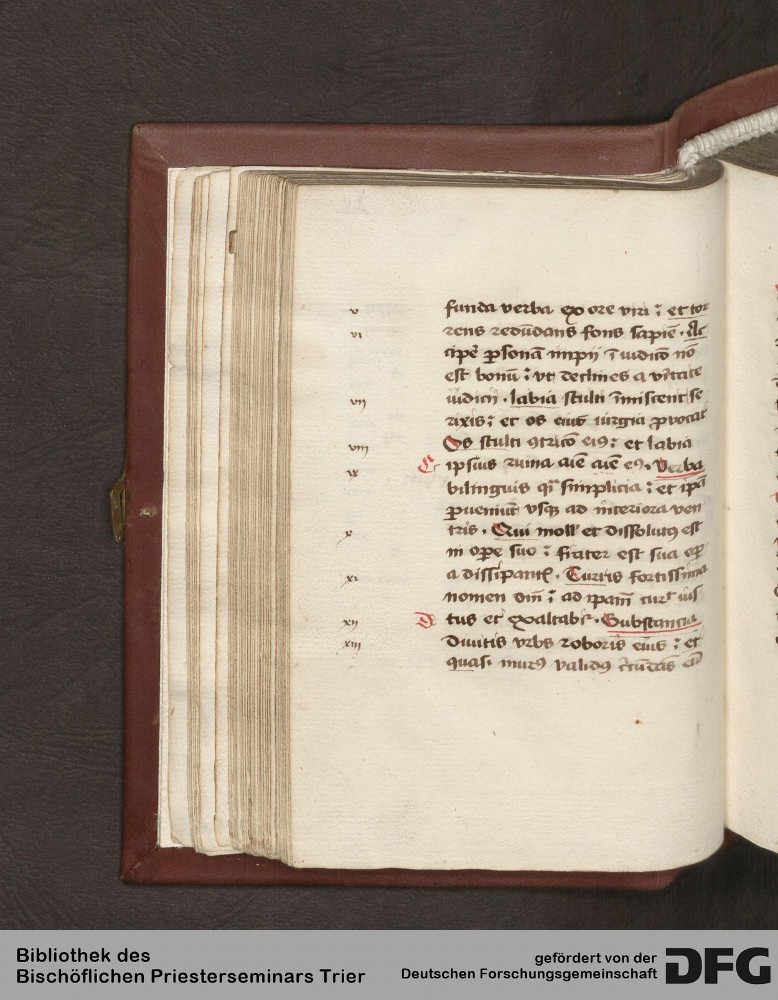 v
funda verba ex ore viri : et tor
vi
rens redūdans fons sapiē . Ac
cipe ꝑsonā impii ī iudico nō
est bonū : vt declines a vītate
vii
iudicii . labia stulti īmiscent se
rixis : et os eius iurgia ꝓvocat
viii
Os stulti ꝯtrico eiꝰ : et labia
ix
C ipsius ruina aīe aīe eꝰ . Verba
bilinguis qͥ simplicia : et ipā
ꝑueniūt vsqꝫ ad interiora ven
x
tris . Qui moll et dissolutꝰ est
in oꝑe suo : frater est sua oꝑ
xi
a dissipantꝭ . Turris fortissima
nomen dnī : ad ipām curͭ ius
xii
D tus et exaltabiͬ . Substancia
xiii
diuitis vrbs roboris eius : et
quasi murꝰ validꝰ
Bibliothek des
Bischöflichen Priesterseminars Trier
gefördert von der
Deutschen Forschungsgemeinschaft
DFG